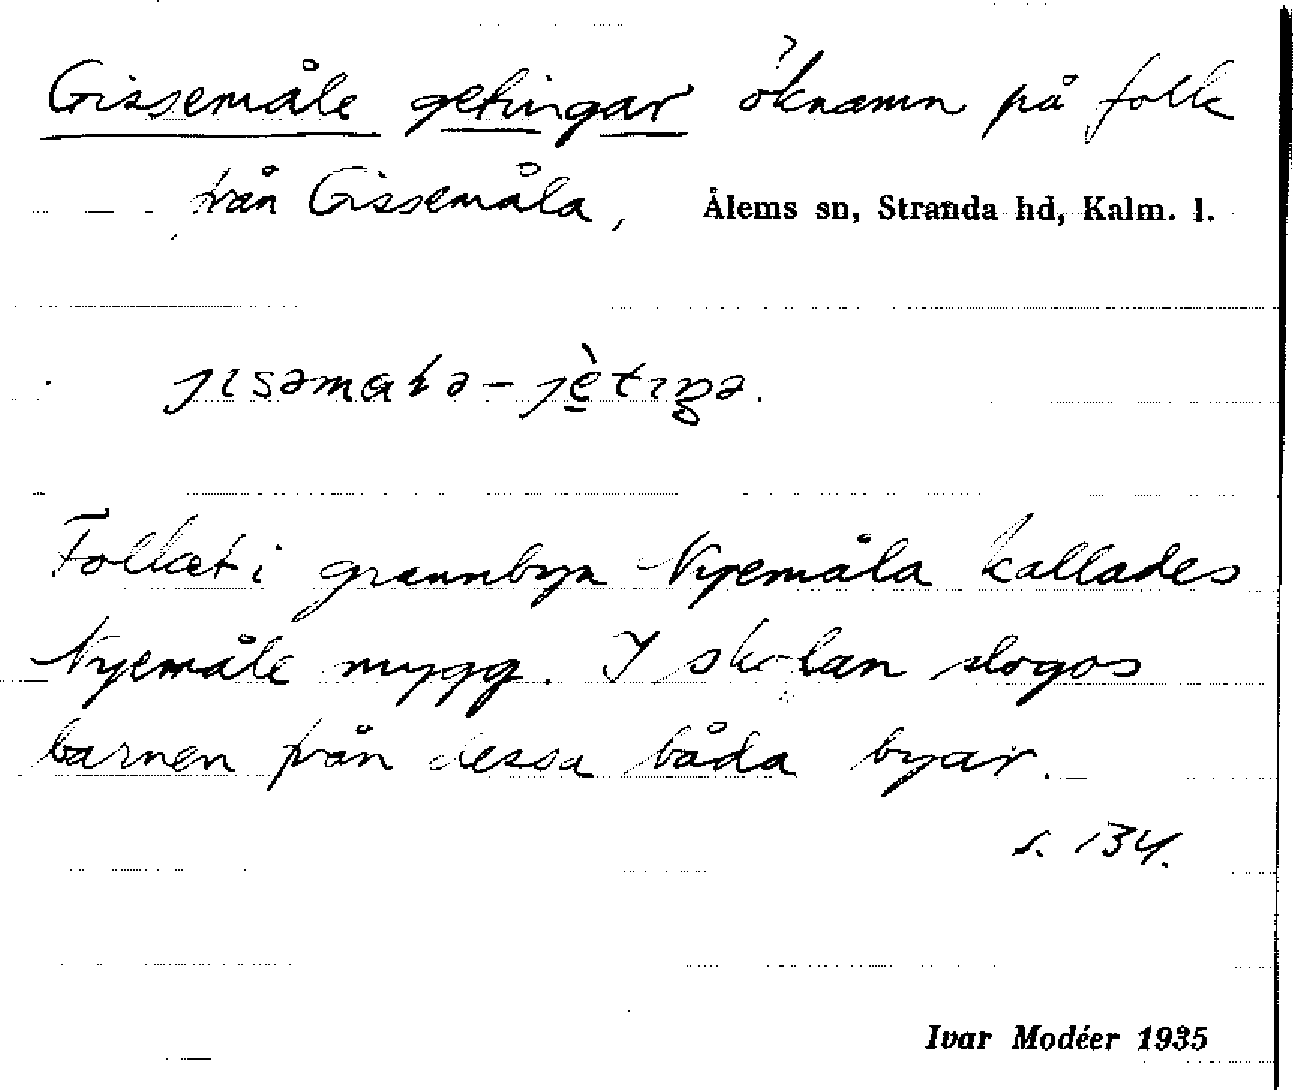 Gissemåle getingar öknamn på folk
från Gissemåla, Ålems sn, Stranda hd, Kalm. l.
Folket i grannbyn Nyemåla kallades
Nyemåle mygg. I skolan slogos
barnen från dessa båda byar.
s. 134.
Ivar Modéer 1935